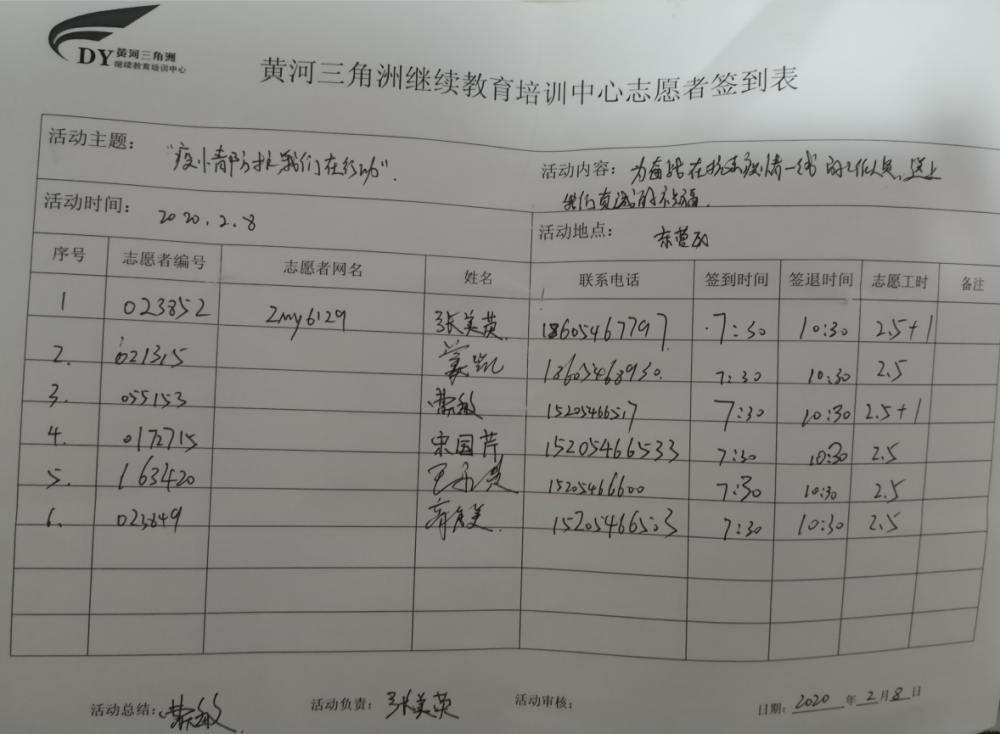 DY 黄河三角洲
继续教育培训中心
黄河三角洲继续教育培训中心志愿者签到表
活动主题: "疫情防控我们在行动".
活动内容: 为奋战在抗击疫情一线的工作人员,送上
我们真诚的祝福.
活动时间: 2020.2.8
活动地点: 东营
序号 志愿者编号 志愿者网名 姓名 联系电话 签到时间 签退时间 志愿工时 备注
1 023852 Zmy6129 张美英 18605467797 7:30 10:30 2.5+1
2. 021315 凯 18605468930. 7:30 10:30 2.5
3. 055153 敏 15205466517 7:30 10:30 2.5+1
4. 0172715 宋国芹 15205466533 7:30 10:30 2.5
5. 163420 王 15205466600 7:30 10:30 2.5
6. 023849 15205466503 7:30 10:30 2.5
活动总结: 敏 活动负责: 张美英 活动审核: 日期: 2020 年 2 月 8 日